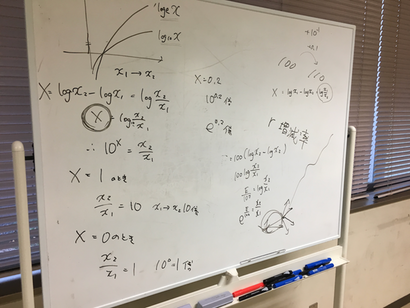 log_e x
log_10 x
x₁ → x₂
X = log x₂ - log x₁ = log x₂/x₁
X = log x₂/x₁
∴ 10^X = x₂/x₁
X = 1 のとき
x₂/x₁ = 10 x₁→x₂ 10倍
X = 0 のとき
x₂/x₁ = 1 10⁰ = 1倍
X = 0.2
10^0.2 倍
e^0.2 倍
100
X = log x₂ - log x₁ = log x₂/x₁
r 増減率
= 100 (log x₂ - log x₁)
100 log x₂/x₁
= log x₂/x₁